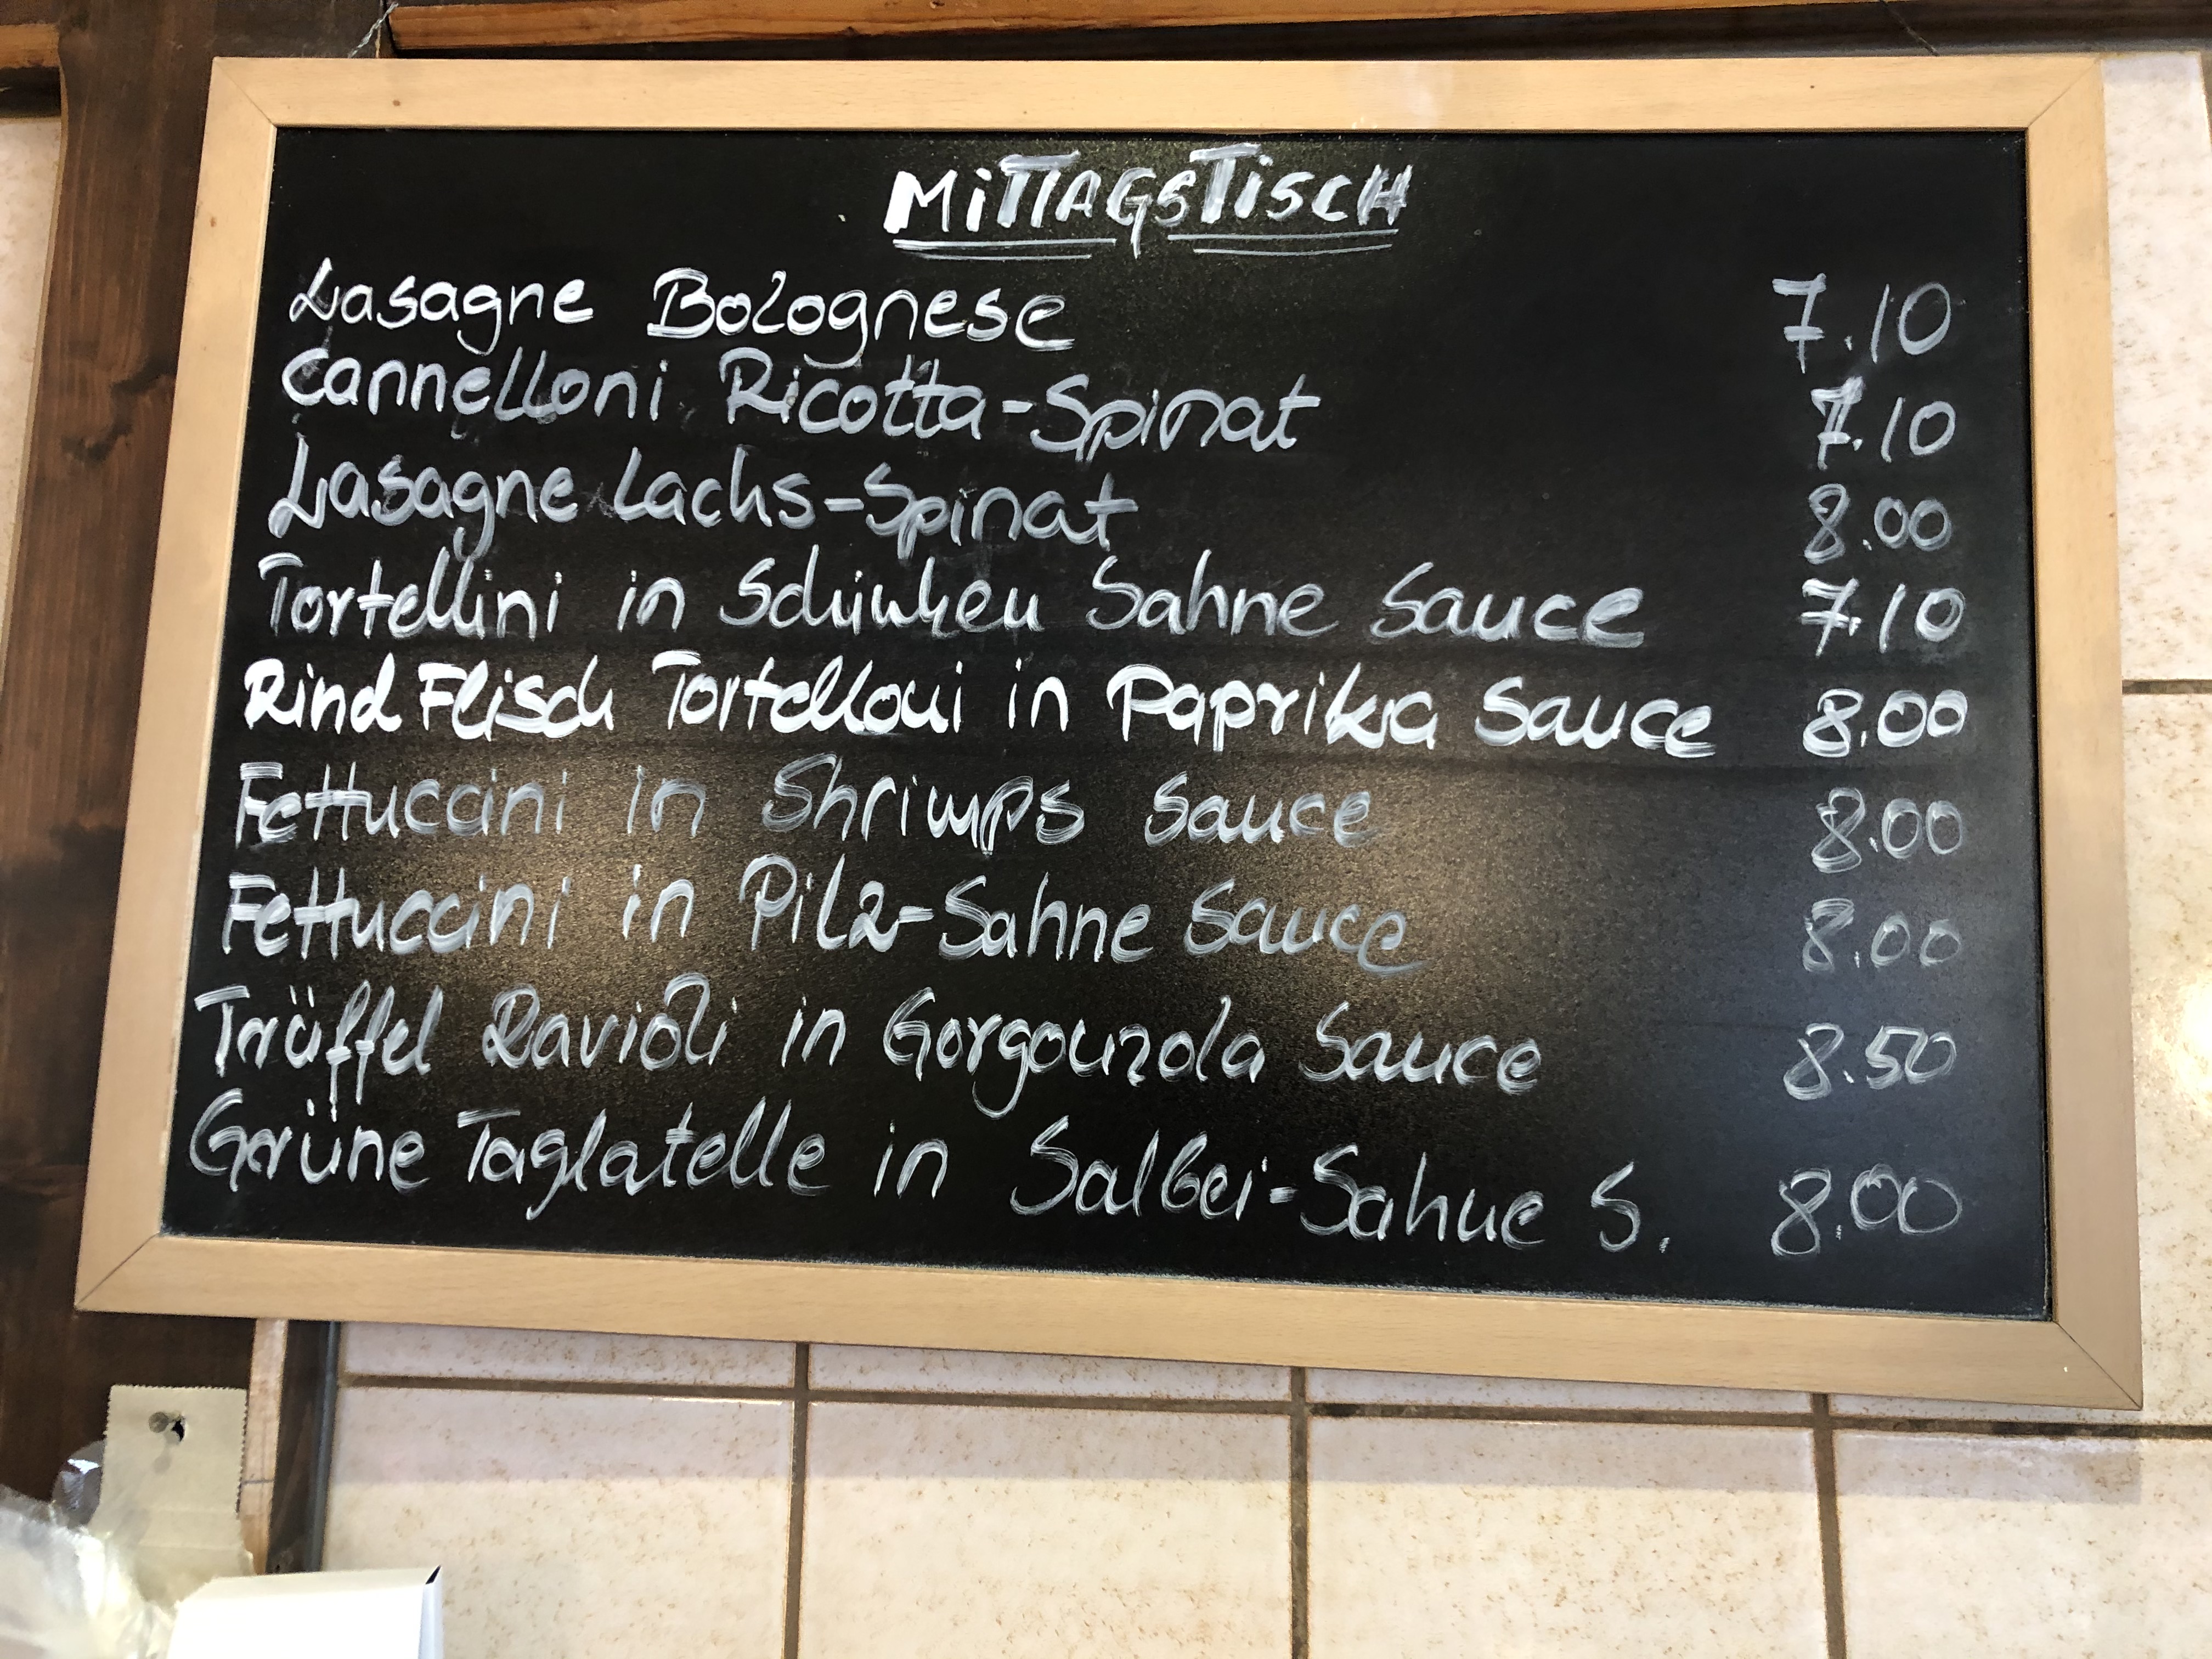 MiTTAGSTiSCH
Lasagne Bolognese 7.10
Cannelloni Ricotta-Spinat 7.10
Lasagne Lachs-Spinat 8.00
Tortellini in Schinken Sahne Sauce 7.10
Rind Flisch Tortelloni in Paprika Sauce 8.00
Fettuccini in Shrimps Sauce 8.00
Fettuccini in Pilz-Sahne Sauce 8.00
Trüffel Ravioli in Gorgonzola Sauce 8.50
Grüne Taglatelle in Salbei-Sahne S. 8.00